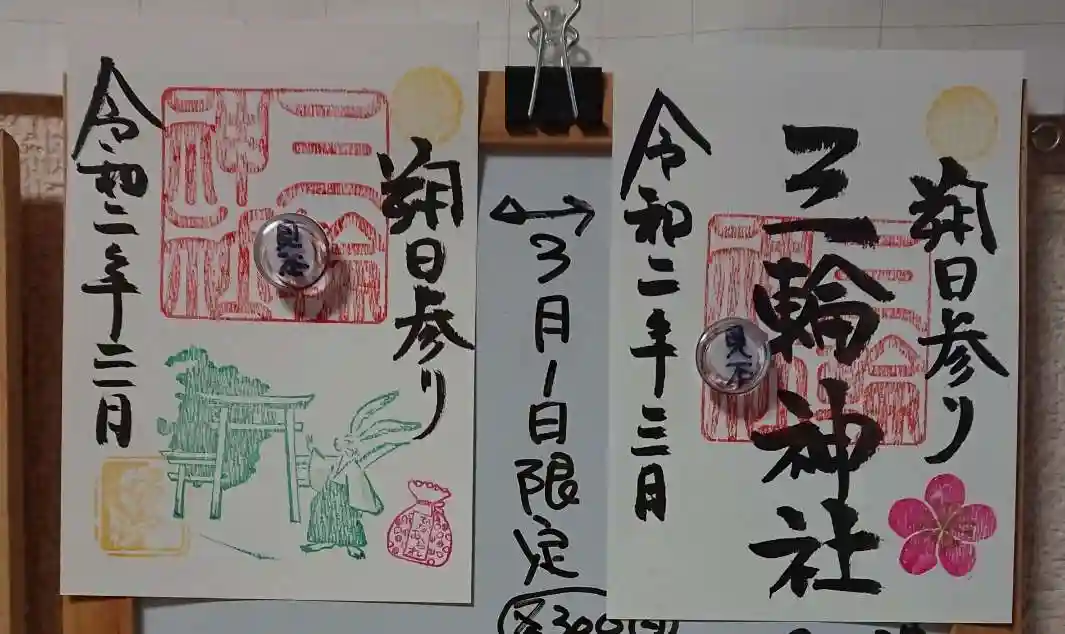 朔日参り
三輪
神社
令和二年三月
見本
3月1日限定
各300円
朔日参り
三輪神社
三輪
神社
令和二年三月
見本